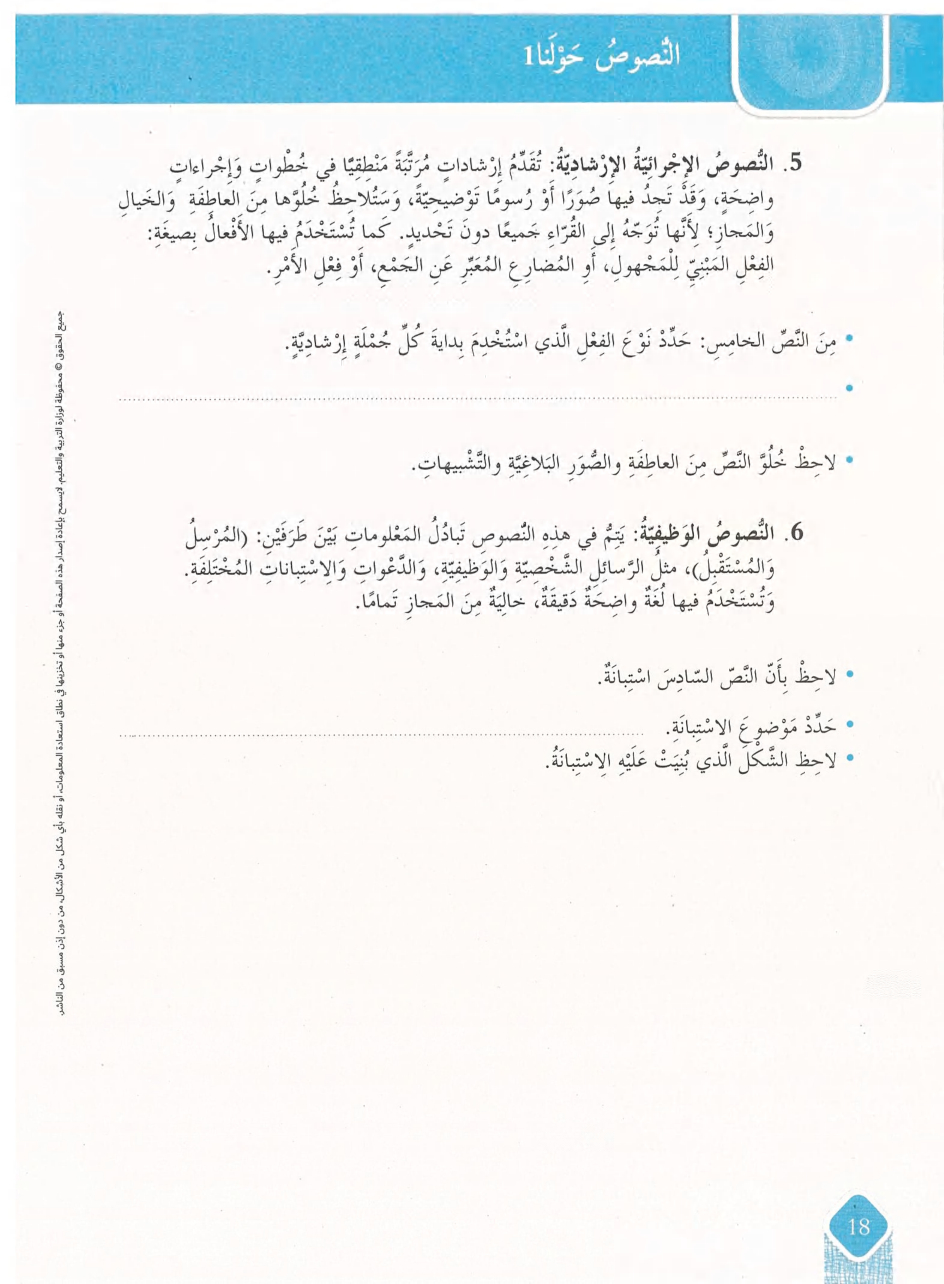 النُّصوصُ حَوْلَنا1
5. النُّصوصُ الإِجْرائِيّةُ الإِرْشادِيّةُ: تُقَدِّمُ إِرْشاداتٍ مُرَتَّبَةً مَنْطِقِيًّا في خُطْواتٍ وَإِجْراءاتٍ
واضِحَةٍ، وَقَدْ تَجِدُ فيها صُوَرًا أَوْ رُسومًا تَوْضيحِيّةً، وَسَتُلاحِظُ خُلُوَّها مِنَ العاطِفَةِ وَالخَيالِ
وَالمَجازِ؛ لِأَنَّها تُوَجّهُ إِلى القُرّاءِ جَميعًا دونَ تَحْديدٍ. كَما تُسْتَخْدَمُ فيها الأَفْعالُ بِصيغَةِ:
الفِعْلِ المَبْنِيِّ لِلْمَجْهولِ، أَوِ المُضارِعِ المُعَبِّرِ عَنِ الجَمْعِ، أَوْ فِعْلِ الأَمْرِ.
• مِنَ النَّصِّ الخامِسِ: حَدِّدْ نَوْعَ الفِعْلِ الَّذي اسْتُخْدِمَ بِدايةَ كُلِّ جُمْلَةٍ إِرْشادِيَّةٍ.
•
• لاحِظْ خُلُوَّ النَّصِّ مِنَ العاطِفَةِ والصُّوَرِ البَلاغِيَّةِ والتَّشْبيهاتِ.
6. النُّصوصُ الوَظيفِيّةُ: يَتِمُّ في هذِهِ النُّصوصِ تَبادُلُ المَعْلوماتِ بَيْنَ طَرَفَيْنِ: (المُرْسِلُ
وَالمُسْتَقْبِلُ)، مثلُ الرَّسائِلِ الشَّخْصِيّةِ وَالوَظيفِيّةِ، وَالدَّعْواتِ وَالِاسْتِباناتِ المُخْتَلِفَةِ.
وَتُسْتَخْدَمُ فيها لُغَةٌ واضِحَةٌ دَقيقَةٌ، خالِيَةٌ مِنَ المَجازِ تَمامًا.
• لاحِظْ بِأَنّ النَّصّ السّادِسَ اسْتِبانَةٌ.
• حَدِّدْ مَوْضوعَ الاسْتِبانَةِ.
• لاحِظِ الشَّكْلَ الَّذي بُنِيَتْ عَلَيْهِ الِاسْتِبانَةُ.
جميع الحقوق © محفوظة لوزارة التربية والتعليم. لايسمح بإعادة إصدار هذه الصفحة أو جزء منها أو تخزينها في نطاق استعادة المعلومات، أو نقله بأي شكل من الأشكال، من دون إذن مسبق من الناشر.
18